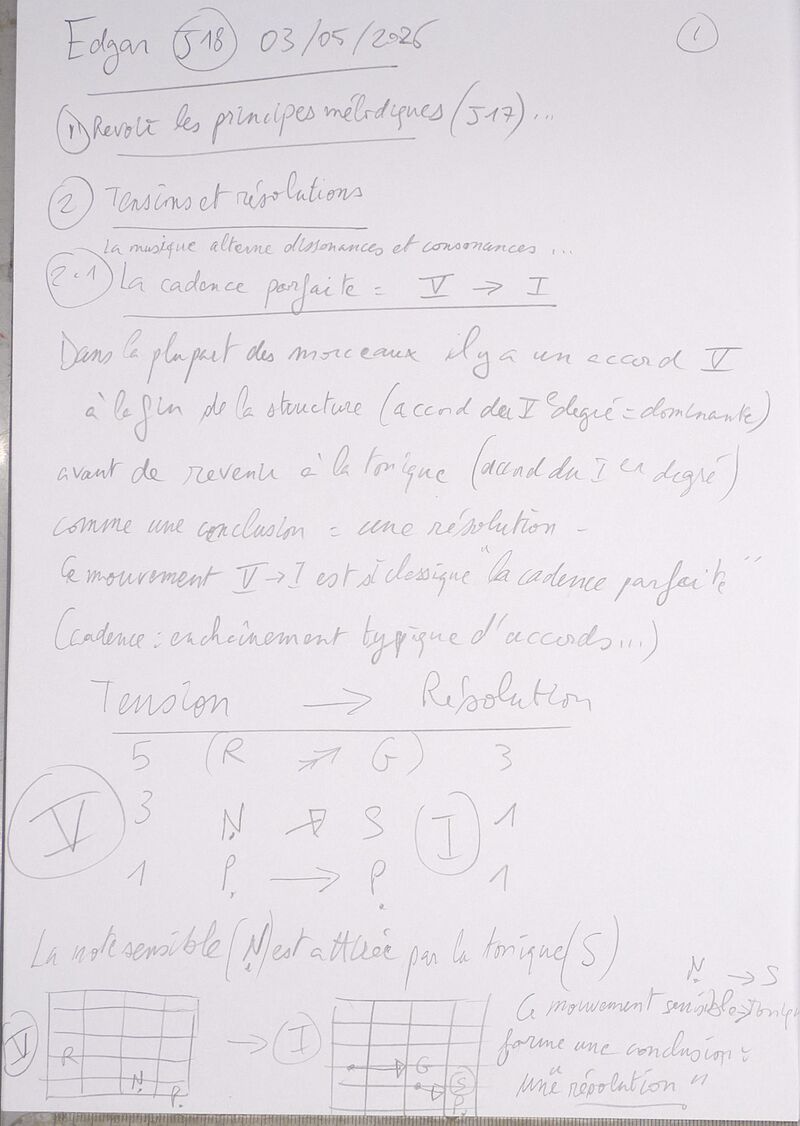 Edgar J18 03/05/2026
1
1) Revoir les principes mélodiques (J17)...
2 Tensions et résolutions
La musique alterne dissonances et consonances...
2.1 La cadence parfaite = V → I
Dans la plupart des morceaux il y a un accord V
à la fin de la structure (accord du Ve degré = dominante)
avant de revenir à la tonique (accord du Ier degré)
comme une conclusion = une résolution -
Ce mouvement V → I est si classique "la cadence parfaite"
(cadence : enchaînement typique d'accords...)
Tension → Résolution
5 (R → G) 3
V 3 Ṇ → S I 1
1 P̣ → P̣ 1
La note sensible (Ṇ) est attirée par la tonique (S)
Ṇ → S
Ce mouvement sensible → tonique
forme une conclusion :
une "résolution"
V R Ṇ P̣ → I G S P̣